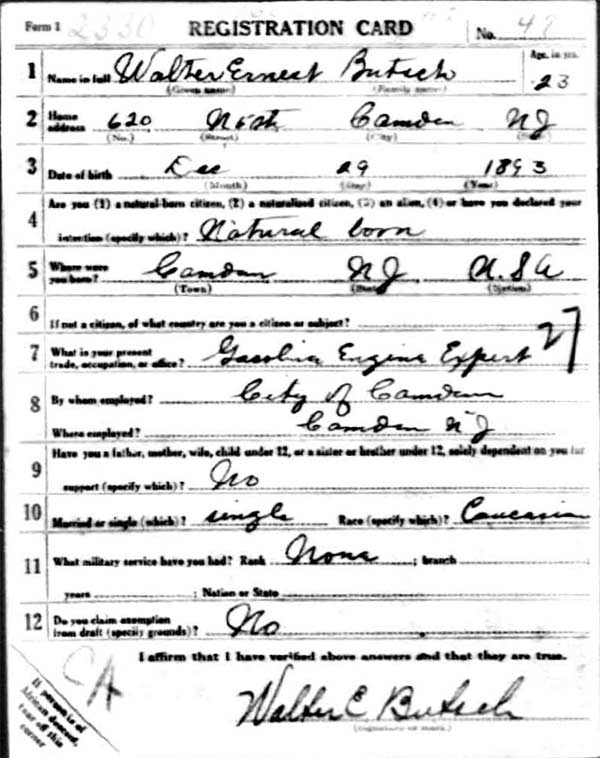 Form 1 2330 REGISTRATION CARD No. 47
1 Name in full Walter Ernest Butsch Age, in yrs. 23
(Given name) (Family name)
2 Home address 620 Nosth Camden NJ
(No.) (Street) (City) (State)
3 Date of birth Dec 29 1893
(Month) (Day) (Year)
4 Are you (1) a natural-born citizen, (2) a naturalized citizen, (3) an alien, (4) or have you declared your
intention (specify which)? Natural born
5 Where were you born? Camden NJ U.S.A
(Town) (State) (Nation)
6 If not a citizen, of what country are you a citizen or subject?
7 What is your present trade, occupation, or office? Gasoline Engine Expert 27
8 By whom employed? City of Camden
Where employed? Camden NJ
9 Have you a father, mother, wife, child under 12, or a sister or brother under 12, solely dependent on you for
support (specify which)? No
10 Married or single (which)? single Race (specify which)? Caucasian
11 What military service have you had? Rank None ; branch
years ; Nation or State
12 Do you claim exemption from draft (specify grounds)? No
I affirm that I have verified above answers and that they are true.
Walter E Butsch
(Signature or mark)
If person is of
African descent,
tear off this
corner